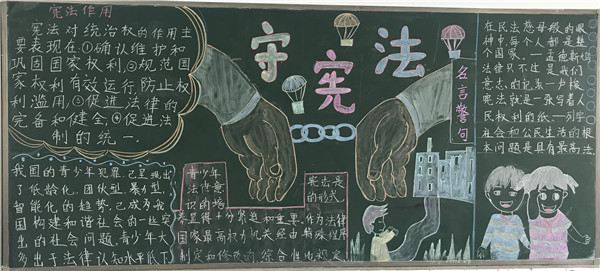 宪法作用
宪法对统治权的作用主
要表现在①确认维护和
巩固国家权利,②规范国
家权利有效运行,防止权
利滥用,③促进法律的
完备和健全,④促进法
制的统一.
守宪法
名言警句
在民法慈母般的眼
神中,每个人都是整
个国家.—孟德斯鸠
法律只不过是我们
意志的记录—卢梭
宪法就是一张写着人
民权利的纸.—列宁
社会和公民生活的根
本问题是具有最高法.
我国的青少年犯罪已呈现出
了低龄化,团伙型,暴力型,
智能化的趋势,已成为我
国构建和谐社会的一些突
出的社会问题,青少年大
多出于法律认知水平低下
青少年
法律意
识的培
养显得十分紧迫和重要.
宪法是
的形式
作为法律
国家最高权力机关经由特殊程序
制定和修改的综合性地规定